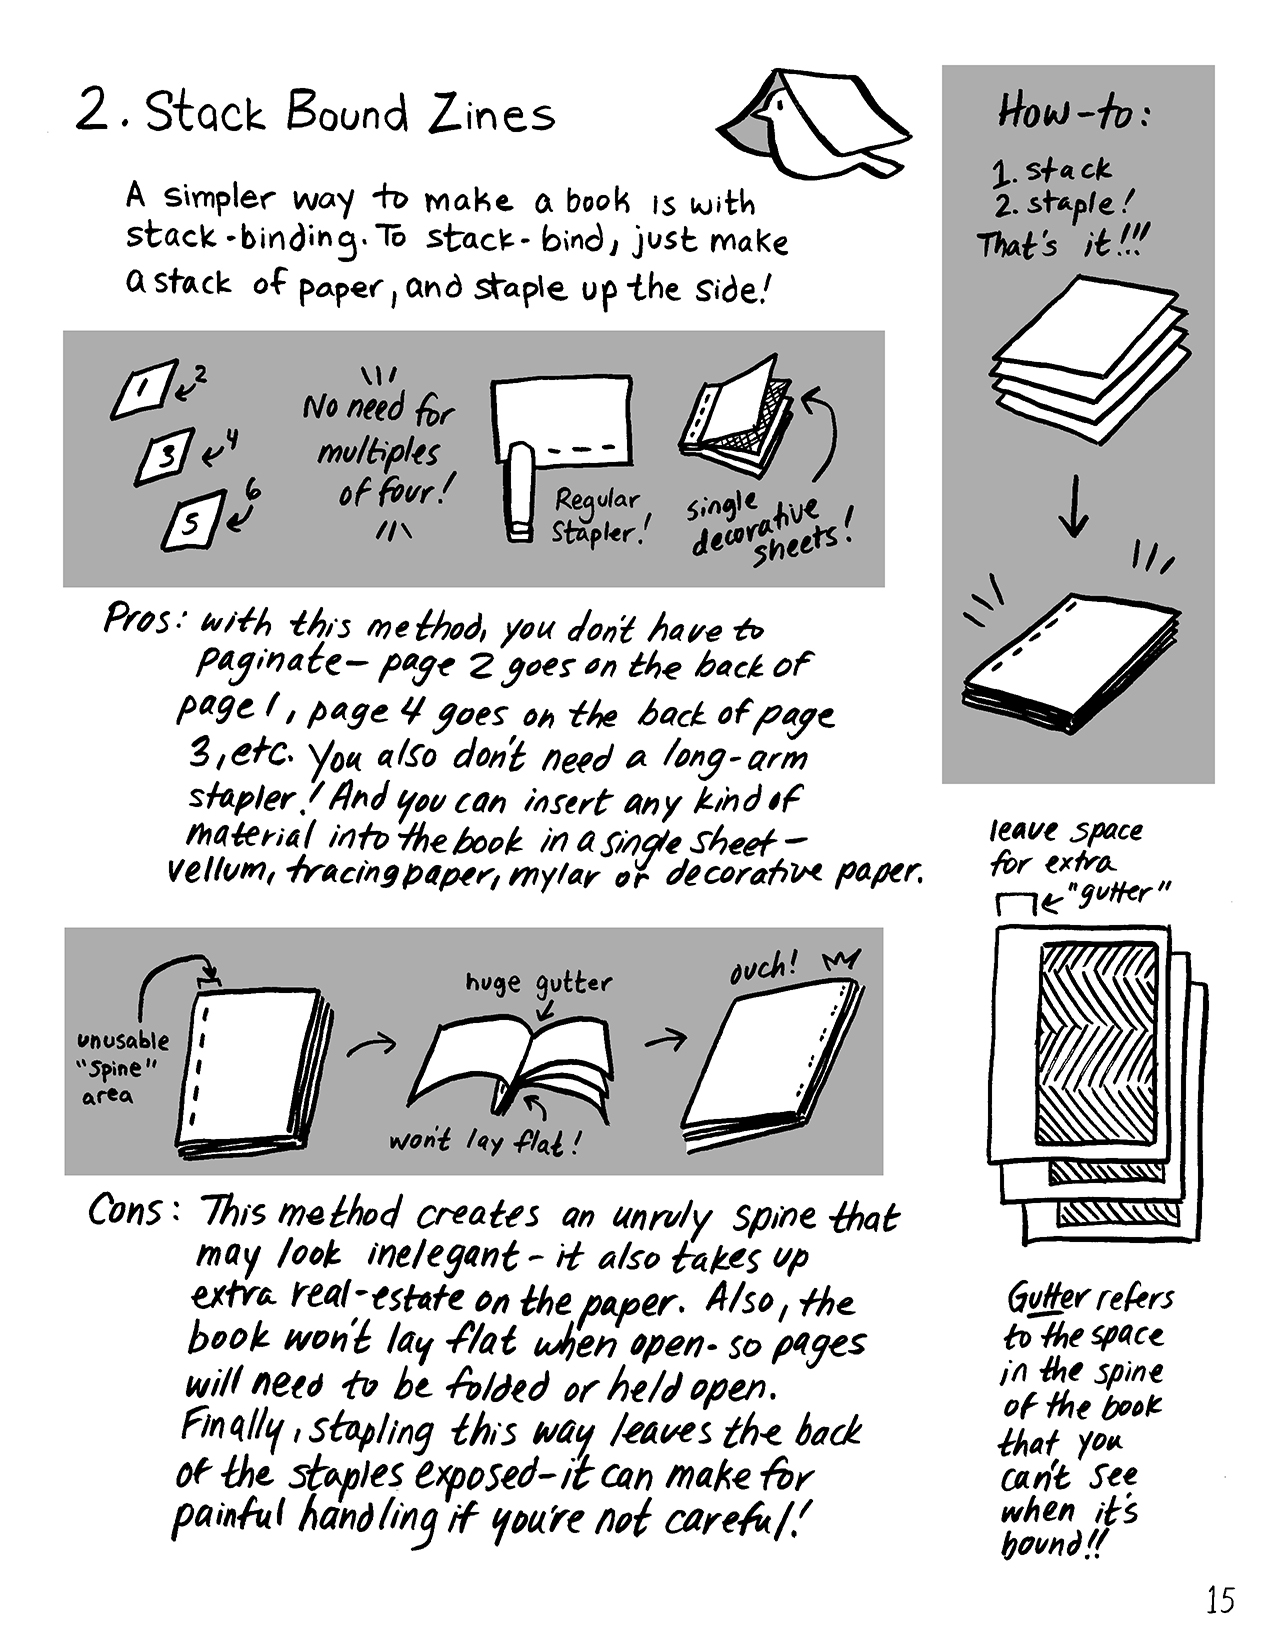 2. Stack Bound Zines
A simpler way to make a book is with
stack-binding. To stack-bind, just make
a stack of paper, and staple up the side!
1
2
3
4
5
6
No need for
multiples
of four!
Regular
Stapler!
single
decorative
sheets!
Pros: with this method, you don't have to
paginate— page 2 goes on the back of
page 1, page 4 goes on the back of page
3, etc. You also don't need a long-arm
stapler! And you can insert any kind of
material into the book in a single sheet—
vellum, tracing paper, mylar or decorative paper.
unusable
"spine"
area
huge gutter
won't lay flat!
ouch!
Cons: This method creates an unruly spine that
may look inelegant - it also takes up
extra real-estate on the paper. Also, the
book won't lay flat when open- so pages
will need to be folded or held open.
Finally, stapling this way leaves the back
of the staples exposed—it can make for
painful handling if you're not careful!
How-to:
1. stack
2. staple!
That's it!!!
leave space
for extra
"gutter"
Gutter refers
to the space
in the spine
of the book
that you
can't see
when it's
bound!!
15